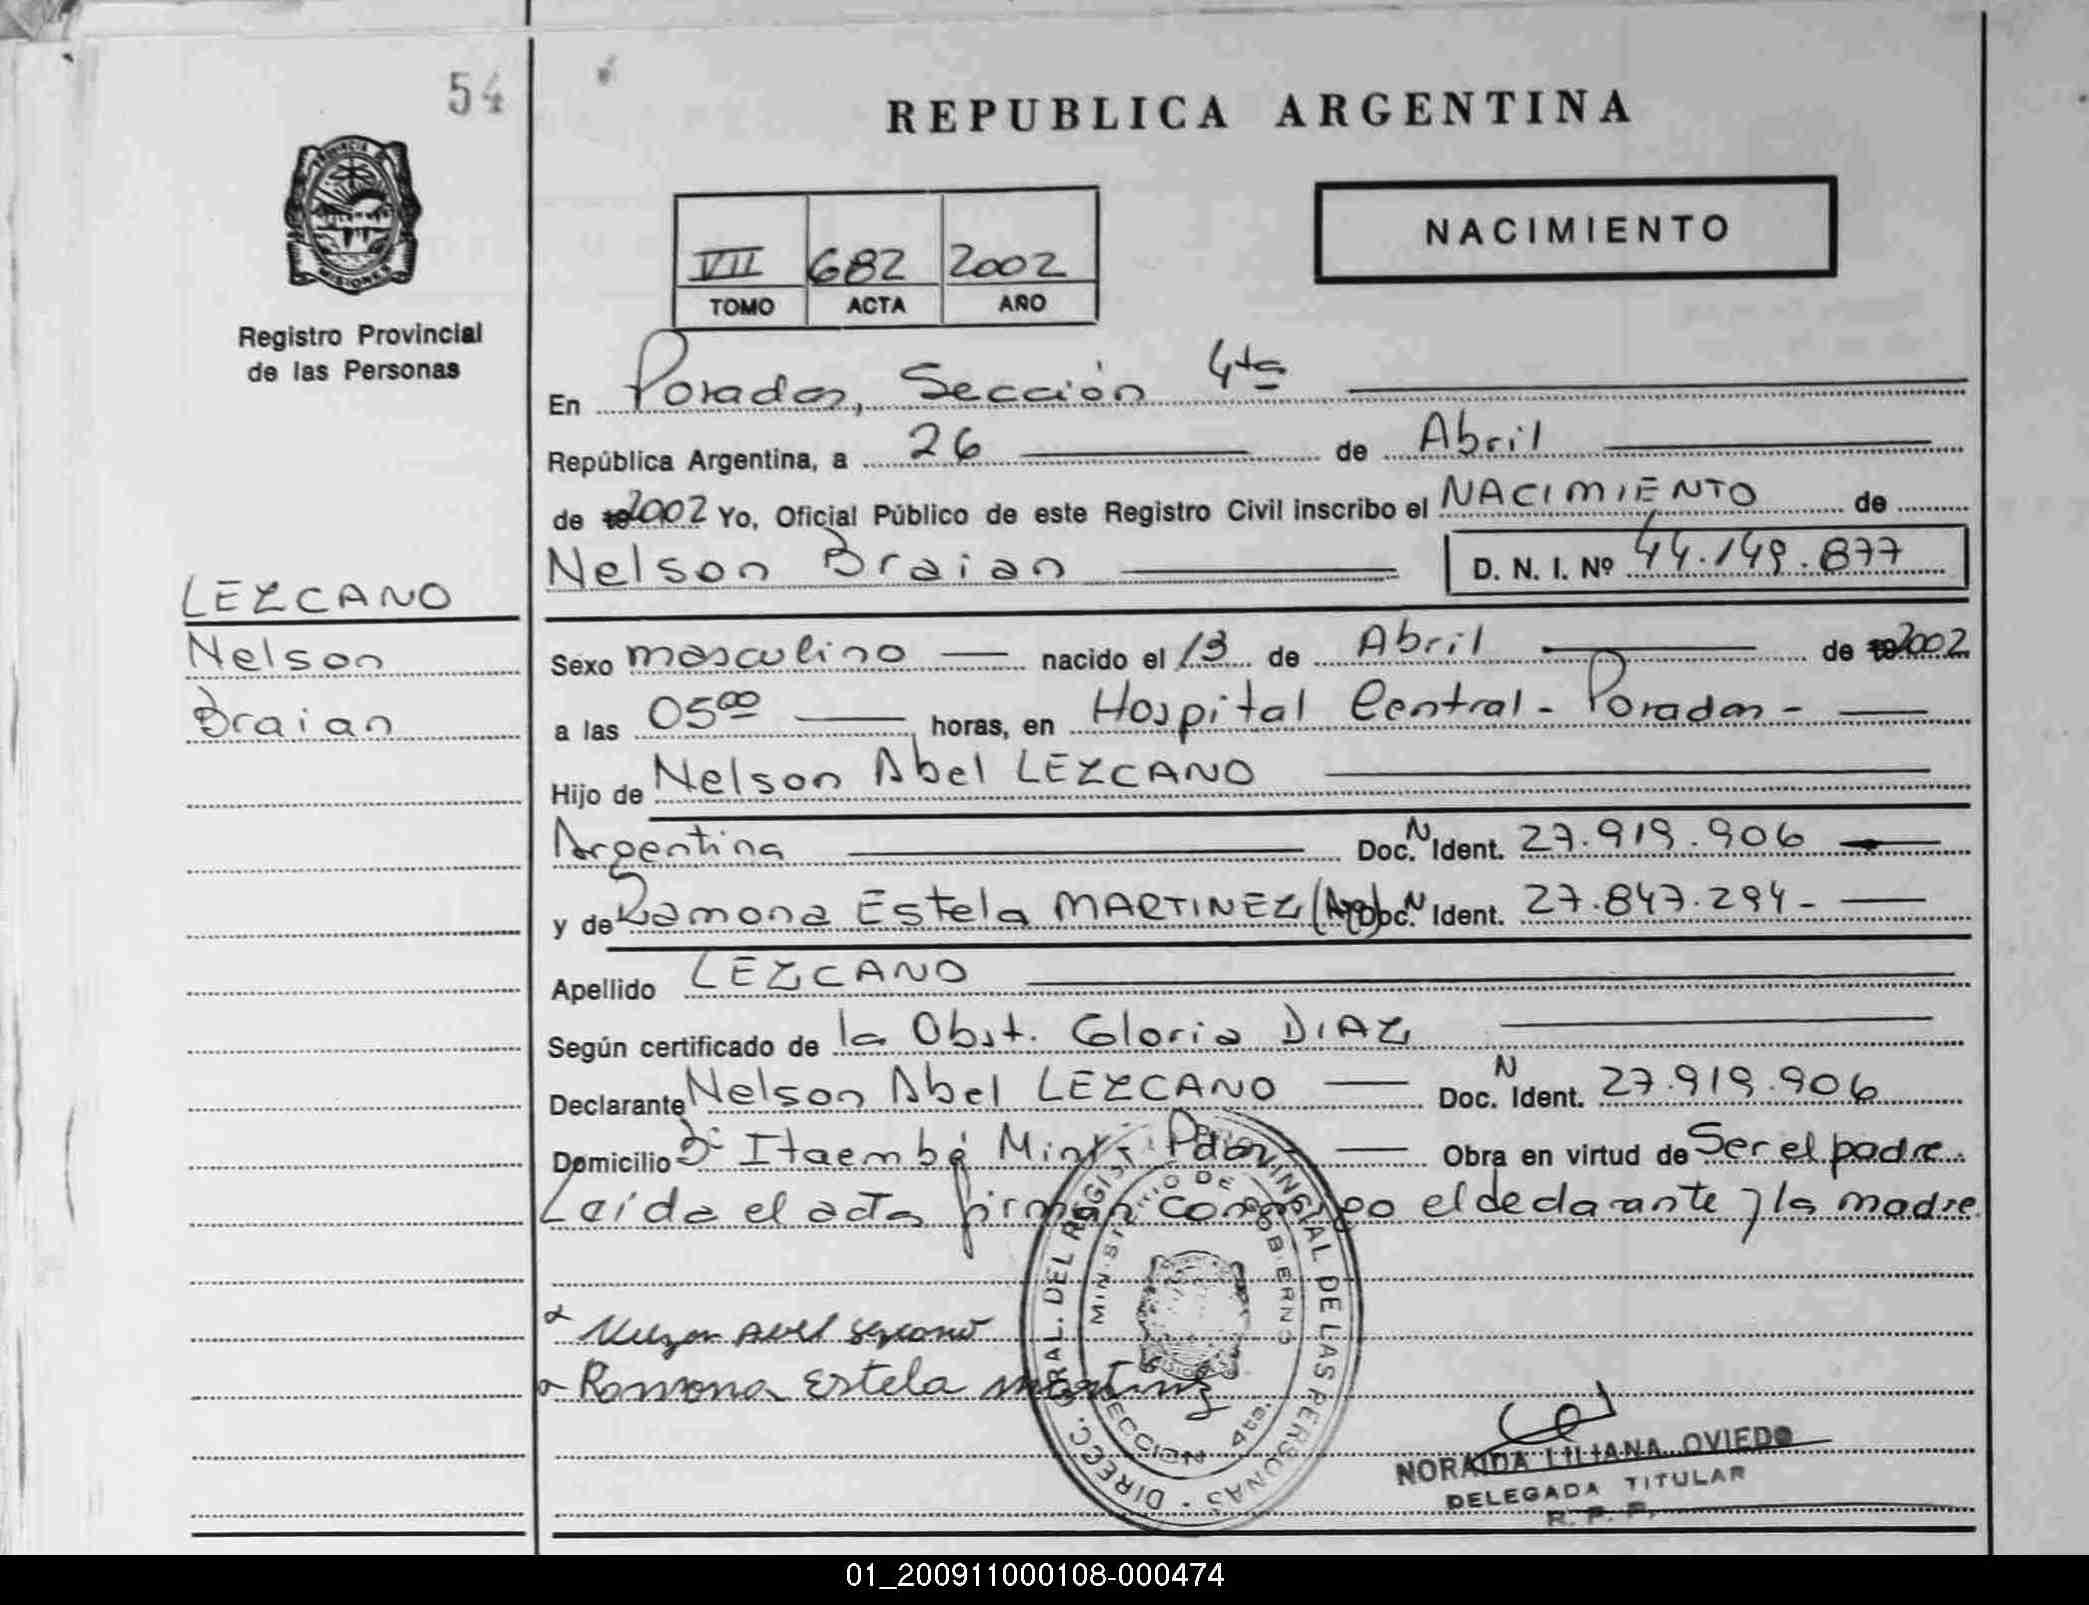 54
REPUBLICA ARGENTINA
NACIMIENTO
VII 682 2002
TOMO ACTA AÑO
PROVINCIA
MISIONES
Registro Provincial
de las Personas
En Posadas, Sección 4ta
República Argentina, a 26 de Abril
de 2002 Yo, Oficial Público de este Registro Civil inscribo el NACIMIENTO de
Nelson Braian D. N. I. Nº 44.149.877
LEZCANO
Nelson
Braian
Sexo masculino nacido el 13 de Abril de 2002
a las 05 00 horas, en Hospital Central - Posadas -
Hijo de Nelson Abel LEZCANO
Argentina Doc. N Ident. 27.919.906
y de Ramona Estela MARTINEZ (Arg) Doc. N Ident. 27.847.294 -
Apellido LEZCANO
Según certificado de la Obst. Gloria DIAZ
Declarante Nelson Abel LEZCANO Doc. N Ident. 27.919.906
Domicilio Bº Itaembé Miní Pdas Obra en virtud de Ser el padre
Leída el acta firman conmigo el declarante y la madre
Nelson Abel Lezcano
Ramona Estela Martinez
DIRECC. GRAL. DEL REGIS PROVINCIAL DE LAS PERSONAS
MINISTERIO DE GOBIERNO
SECCION 4ta.
NORAIDA LILIANA OVIEDO
DELEGADA TITULAR
R. P. P.
01_200911000108-000474